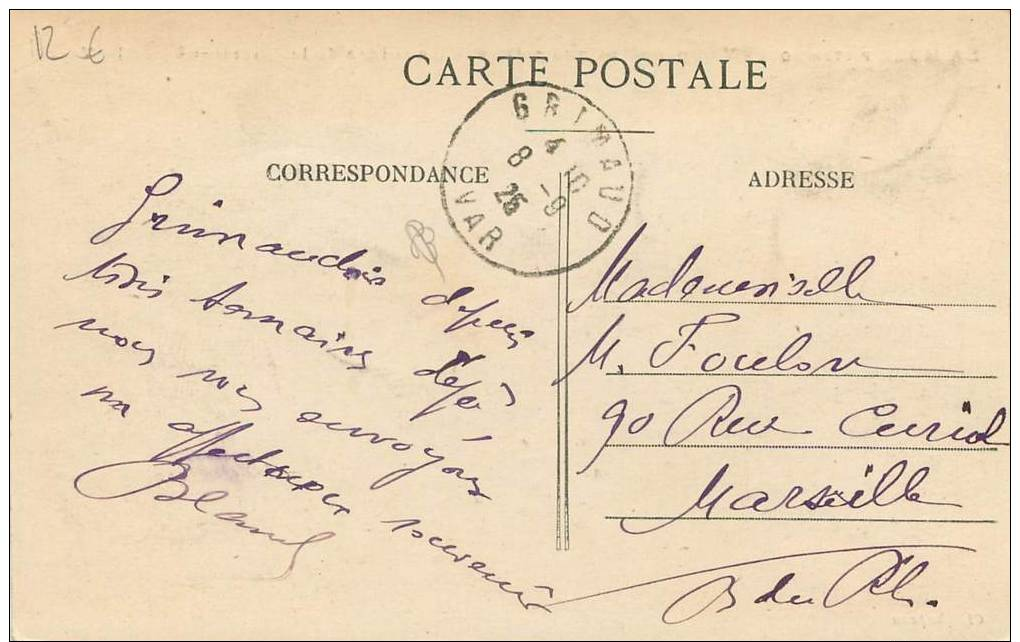 12 €
CARTE POSTALE
GRIMAUD
4 15
8 -9
25
VAR
CORRESPONDANCE
ADRESSE
Grimaudois depuis
trois semaines déjà
nous vous envoyons
un affectueux souvenir
Mademoiselle
M. Foulon
90 Rue Curiol
Marseille
B du Rh.